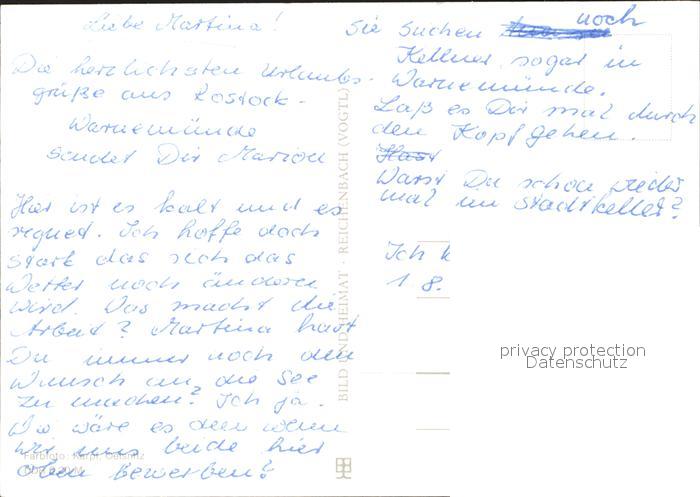 Liebe Martina!
Die herzlichsten Urlaubs-
grüße aus Rostock-
Warnemünde
sendet Dir Marion
Hier ist es kalt und es
regnet. Ich hoffe doch
stark das sich das
Wetter noch ändern
wird. Was macht die
Arbeit? Martina hast
Du immer noch den
Wunsch an die See
zu machen? Ich ja.
Wie wäre es denn wenn
wir uns beide hier
oben bewerben?
Sie suchen noch
Kellner sogar in
Warnemünde.
Laß es Dir mal durch
den Kopf gehen.
Hast
Warst Du schon wieder
mal im Stadtkeller?
Ich k
18.
BILD UND HEIMAT · REICHENBACH (VOGTL)
Farbfoto:
privacy protection
Datenschutz